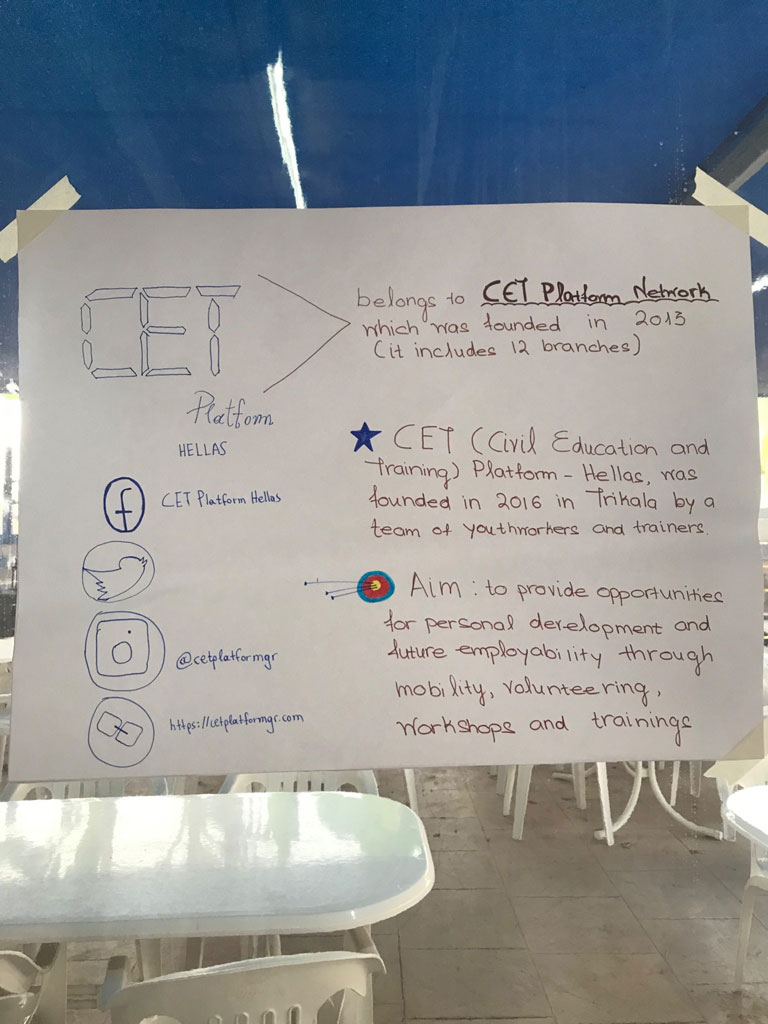 CET
Platform
HELLAS
f CET Platform Hellas
@cetplatformgr
https://cetplatformgr.com
belongs to CET Platform Network
which was founded in 2013
(it includes 12 branches)
CET (Civil Education and
Training) Platform - Hellas, was
founded in 2016 in Trikala by a
team of youthworkers and trainers.
Aim : to provide opportunities
for personal development and
future employability through
mobility, volunteering,
workshops and trainings